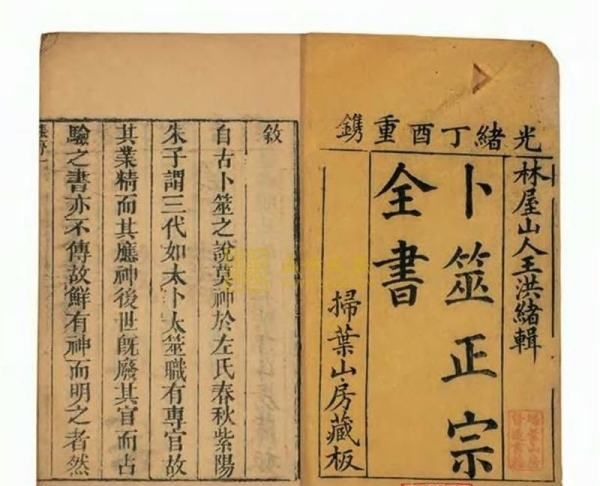 光緒丁酉重鐫
林屋山人王洪緒輯
卜筮正宗
全書
掃葉山房藏板
敘
自古卜筮之說莫神於左氏春秋紫陽
朱子謂三代如太卜太筮職有專官故
其業精而其應神後世旣廢其官而占
驗之書亦不傳故鮮有神而明之者然